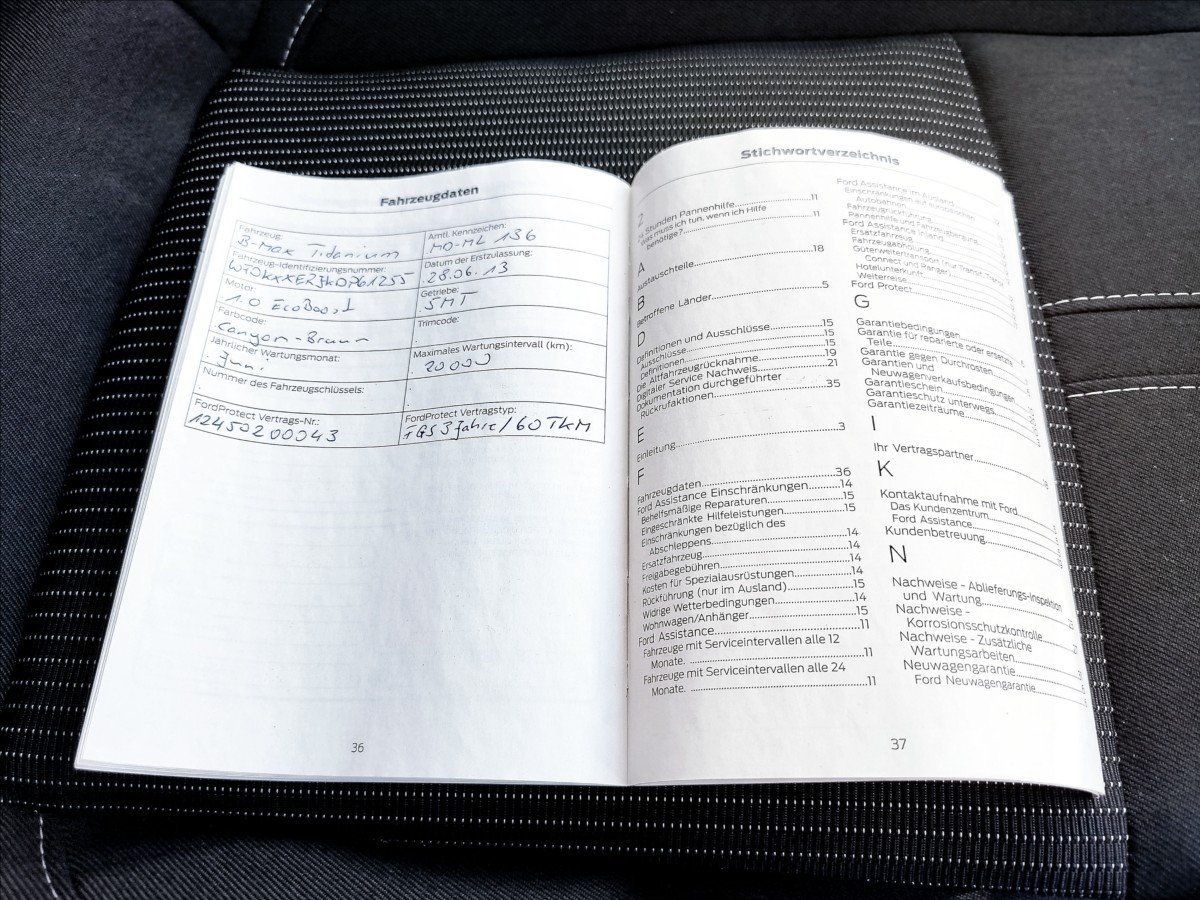 Fahrzeugdaten
Fahrzeug:
B-Max Titanium
Amtl. Kennzeichen:
MO-ML 136
Fahrzeug-Identifizierungsnummer:
Datum der Erstzulassung:
28.06.13
Motor:
1.0 EcoBoost
Getriebe:
5MT
Farbcode:
Canyon-Braun
Trimcode:
Jährlicher Wartungsmonat:
Juni
Maximales Wartungsintervall (km):
20000
Nummer des Fahrzeugschlüssels:
FordProtect Vertrags-Nr.:
12450200043
FordProtect Vertragstyp:
FGS 3 Jahre/60 TKM
36
Stichwortverzeichnis
2
Stunden Pannenhilfe..........11
Was muss ich tun, wenn ich Hilfe
benötige?..........11
A
Austauschteile..........18
B
Betroffene Länder..........5
D
Definitionen und Ausschlüsse..........15
Ausschlüsse..........15
Definitionen..........15
Die Altfahrzeugrücknahme..........19
Digitaler Service Nachweis..........21
Dokumentation durchgeführter
Rückrufaktionen..........35
E
Einleitung..........3
F
Fahrzeugdaten..........36
Ford Assistance Einschränkungen..........14
Behelfsmäßige Reparaturen..........15
Eingeschränkte Hilfeleistungen..........15
Einschränkungen bezüglich des
Abschleppens..........14
Ersatzfahrzeug..........14
Freigabegebühren..........14
Kosten für Spezialausrüstungen..........14
Rückführung (nur im Ausland)..........15
Widrige Wetterbedingungen..........14
Wohnwagen/Anhänger..........15
Ford Assistance..........11
Fahrzeuge mit Serviceintervallen alle 12
Monate. ..........11
Fahrzeuge mit Serviceintervallen alle 24
Monate. ..........11
Ford Assistance im Ausland
Einschränkungen auf europäischen
Autobahnen
Fahrzeugrückführung
Pannenhilfe und Fahrzeugbergung
Ford Assistance Inland
Ersatzfahrzeug
Fahrzeugabholung
Güterweitertransport (nur Transit, Transit
Connect und Ranger)
Hotelunterkunft
Weiterreise
Ford Protect
G
Garantiebedingungen
Garantie für reparierte oder ersetzte
Teile
Garantie gegen Durchrosten
Garantien und
Neuwagenverkaufsbedingungen
Garantieschein
Garantieschutz unterwegs
Garantiezeiträume
I
Ihr Vertragspartner..........18
K
Kontaktaufnahme mit Ford
Das Kundenzentrum
Ford Assistance
Kundenbetreuung
N
Nachweise - Ablieferungs-inspektion
und Wartung
Nachweise -
Korrosionsschutzkontrolle
Nachweise - Zusätzliche
Wartungsarbeiten
Neuwagengarantie
Ford Neuwagengarantie
37